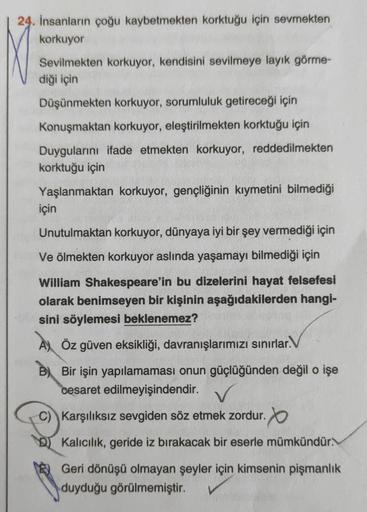 24. İnsanların çoğu kaybetmekten korktuğu için sevmekten
korkuyor
Sevilmekten korkuyor, kendisini sevilmeye layık görme-
diği için
Düşünmekten korkuyor, sorumluluk getireceği için
Konuşmaktan korkuyor, eleştirilmekten korktuğu için
Duygularını ifade etmekten korkuyor, reddedilmekten
korktuğu için
Yaşlanmaktan korkuyor, gençliğinin kıymetini bilmediği
için
Unutulmaktan korkuyor, dünyaya iyi bir şey vermediği için
Ve ölmekten korkuyor aslında yaşamayı bilmediği için
William Shakespeare'in bu dizelerini hayat felsefesi
olarak benimseyen bir kişinin aşağıdakilerden hangi-
sini söylemesi beklenemez?
A) Öz güven eksikliği, davranışlarımızı sınırlar.
B) Bir işin yapılamaması onun güçlüğünden değil o işe
cesaret edilmeyişindendir.
C) Karşılıksız sevgiden söz etmek zordur.
D) Kalıcılık, geride iz bırakacak bir eserle mümkündür.
E) Geri dönüşü olmayan şeyler için kimsenin pişmanlık
duyduğu görülmemiştir.